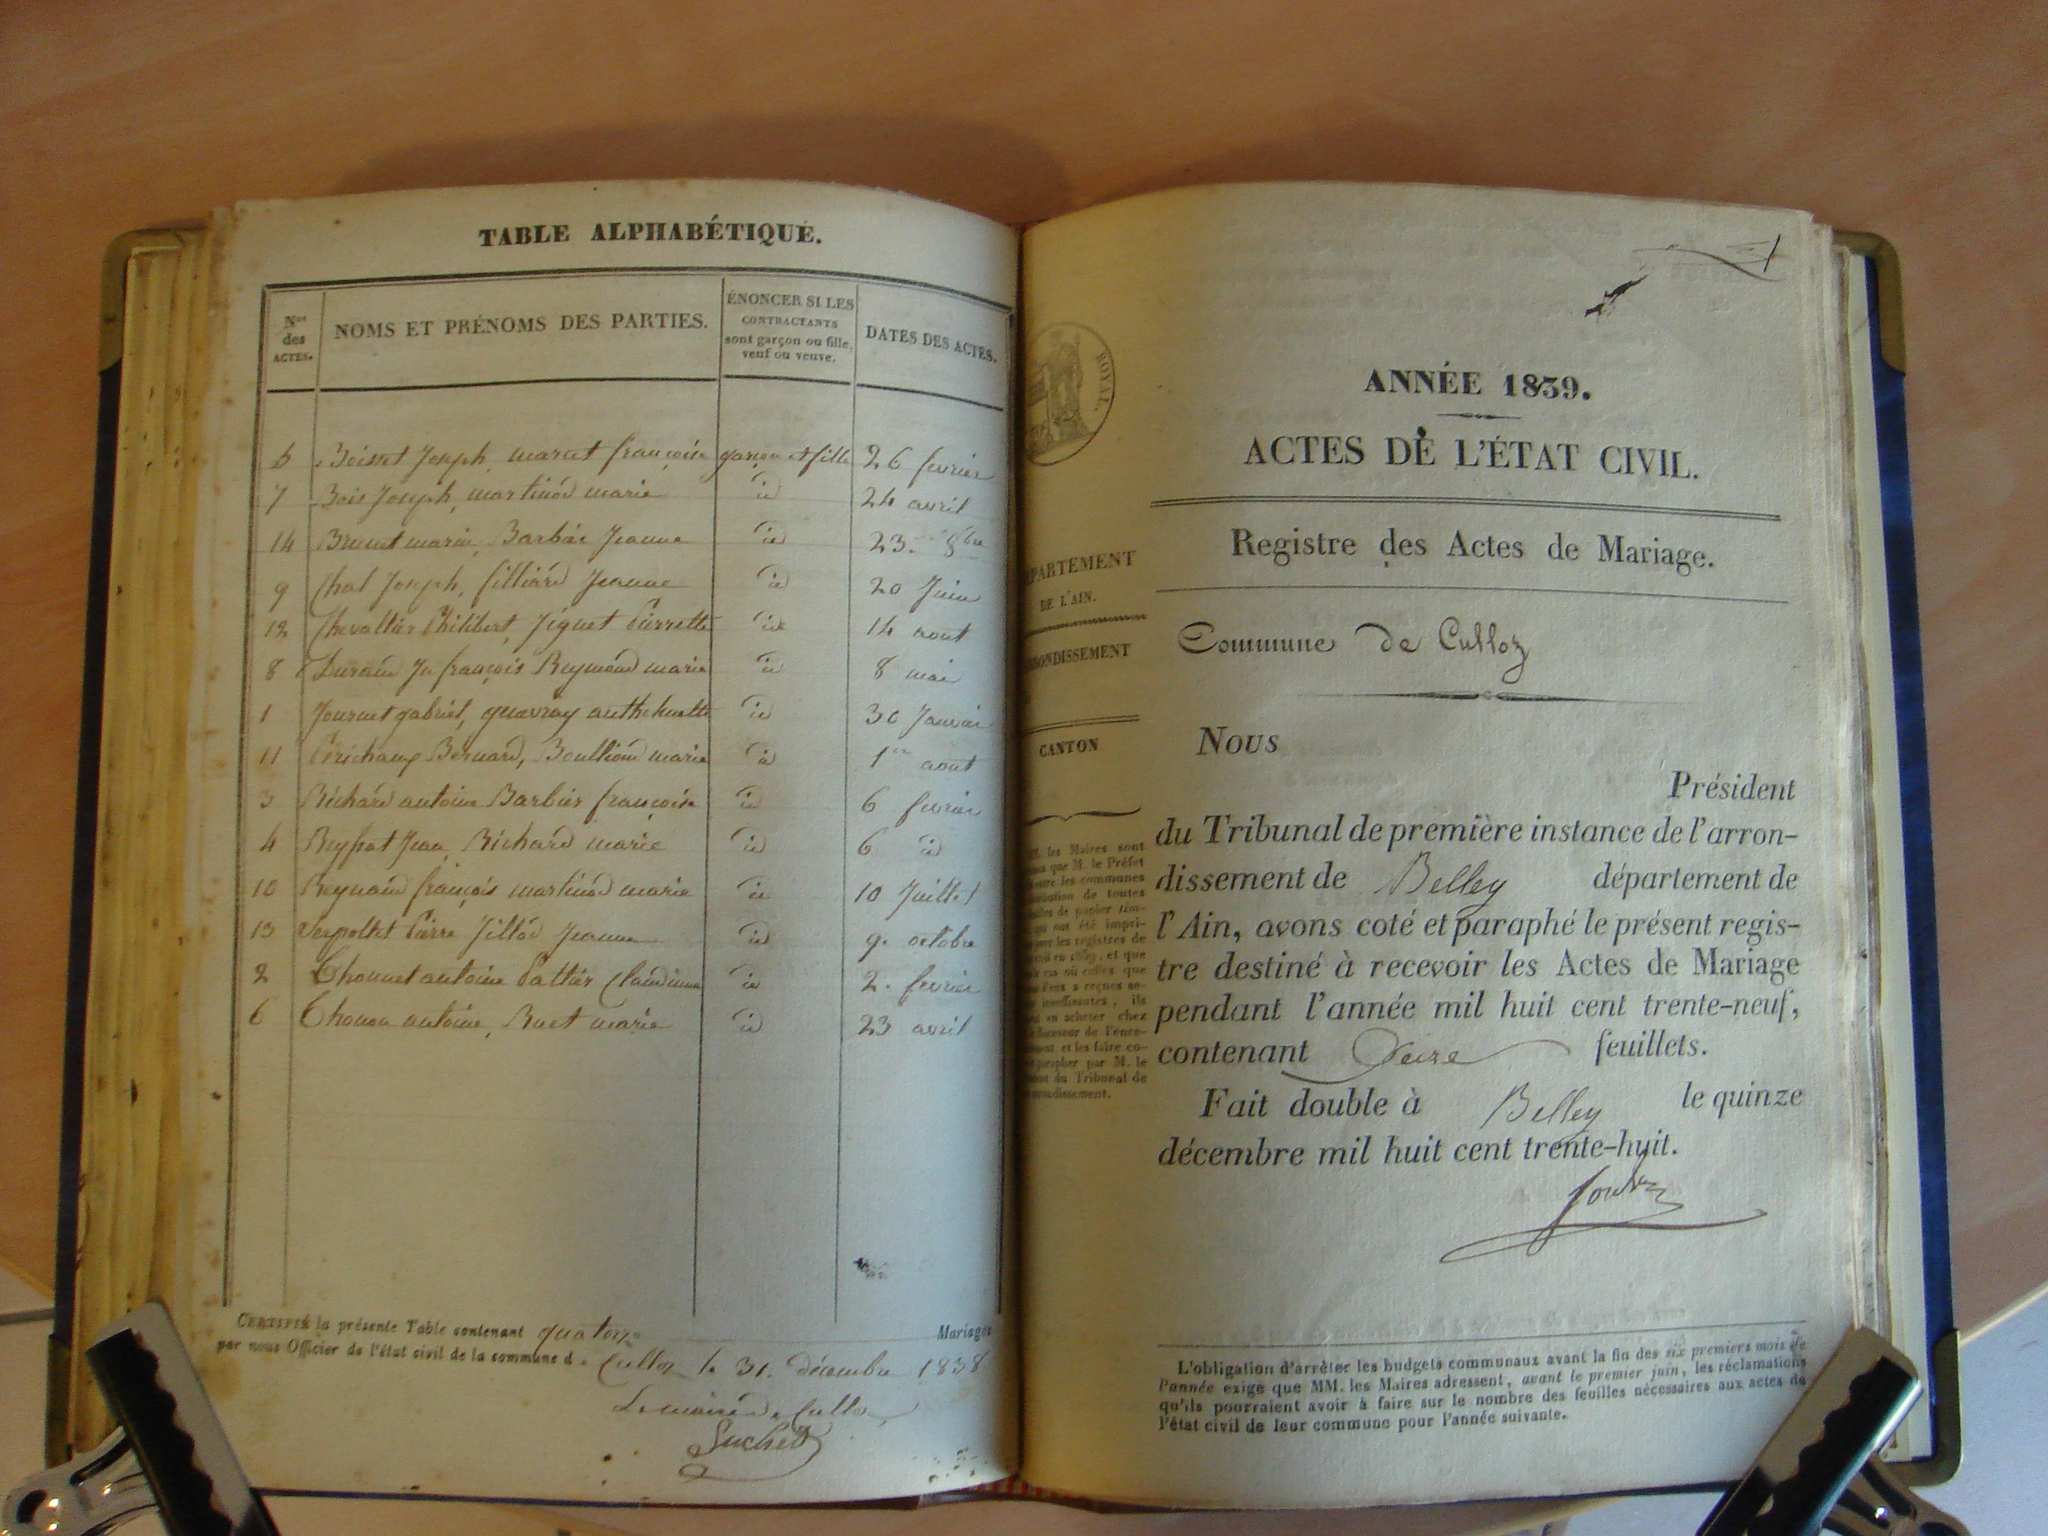 TABLE ALPHABÉTIQUE.
Nos des ACTES.
NOMS ET PRÉNOMS DES PARTIES.
ÉNONCER SI LES CONTRACTANTS sont garçon ou fille, veuf ou veuve.
DATES DES ACTES.
5 Boisset Joseph, marcet françoise garçon et fille 26 fevrier
7 Bois Joseph, martinod marie id 24 avril
14 Brunet marin, Barbier Jeanne id 23. 8bre
9 Chal Joseph, filliard Jeanne id 20 Juin
12 Chevallier Philibert, Jiguet Pierrette id 14 aout
8 Durand Jn françois Reymond marie id 8 mai
1 Journet gabriel, id 30 Janvier
11 Bernard, marie id 1er aout
3 Richard antoine Barbier françoise id 6 fevrier
4 Jean, Richard marie id 6 id
10 Reynaud françois martinod marie id 10 Juillet
13 Pierre Jeanne id 9. octobre
2 antoine Claudine id 2. fevrier
6 antoine, marie id 23 avril
CERTIFIÉ la présente Table contenant quatorze Mariages
par nous Officier de l'état civil de la commune de Culloz le 31. décembre 1838
Le maire de Culloz
Suchet
ROYAL.
ANNÉE 1839.
ACTES DE L'ÉTAT CIVIL.
Registre des Actes de Mariage.
Commune de Culloz
PARTEMENT
DE L'AIN.
RONDISSEMENT
CANTON
les Maires sont
que M. le Préfet
les communes
de toutes
de papier
qui ont été
les registres de
et que
où celles que
reçues
ils
acheter chez
de
et les faire
par M. le
du Tribunal de
Nous
Président
du Tribunal de première instance de l'arron-
dissement de Belley département de
l'Ain, avons coté et paraphé le présent regis-
tre destiné à recevoir les Actes de Mariage
pendant l'année mil huit cent trente-neuf,
contenant Seize feuillets.
Fait double à Belley le quinze
décembre mil huit cent trente-huit.
L'obligation d'arrêter les budgets communaux avant la fin des six premiers mois de
l'année exige que MM. les Maires adressent, avant le premier juin, les réclamations
qu'ils pourraient avoir à faire sur le nombre des feuilles nécessaires aux actes de
l'état civil de leur commune pour l'année suivante.